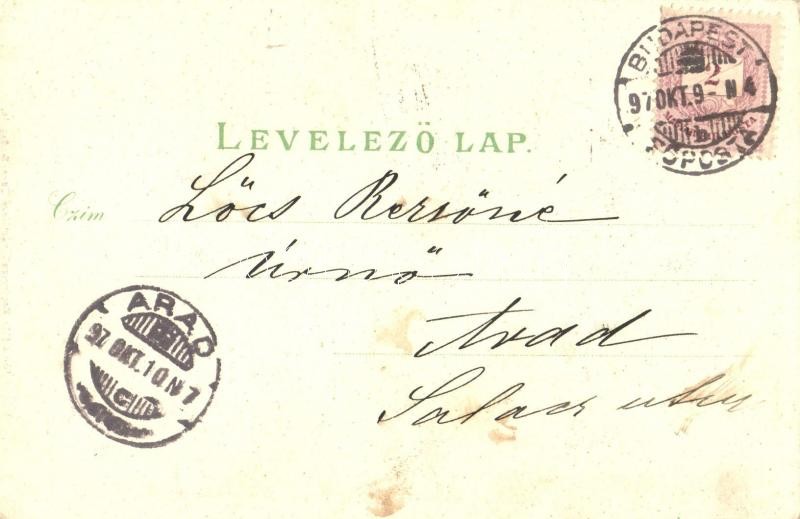 BUDAPEST
2
97 OKT. 9 - N 4
FŐPOSTA
LEVELEZŐ LAP.
Czim
Lőcs Rezsőné
Úrnő
Arad
Salacz utca
ARAD
97 OKT. 10 N 7
C